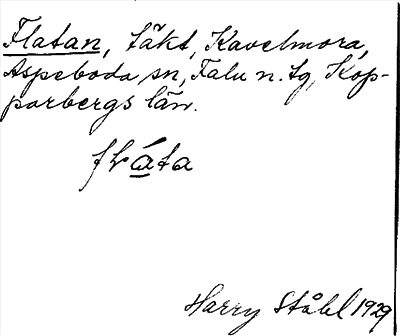 Flatan, täkt, Kavelmora,
Aspeboda sn, Falu n. tg, Kop-
parbergs län.
flāta
Harry Ståhl 1929